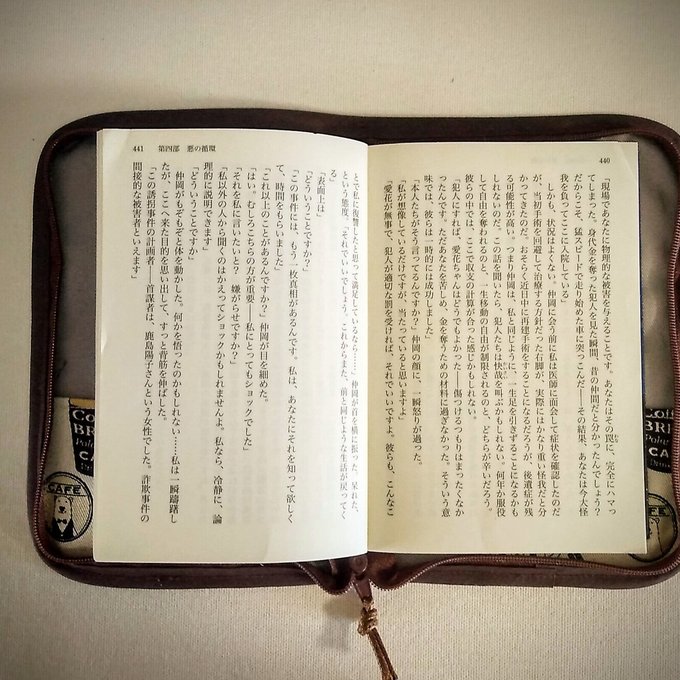 440
「現場であなたに物理的な被害を与えることです。あなたはその罠に、完全にハマっ
てしまった。身代金を奪った犯人を見た瞬間、昔の仲間だと分かったんでしょう?
だからこそ、猛スピードで走り始めた車に突っこんだ——その結果、あなたは今大怪
我を負ってここに入院している」
しかも、状況はよくない。仲岡に会う前に私は医師に面会して症状を確認したのだ
が、当初手術を回避して治療する方針だった右脚が、実際にはかなり重い怪我だと分
かってきたのだ。おそらく近日中に再建手術をすることになるだろうが、後遺症が残
る可能性が高い。つまり仲岡は、私と同じように、一生足を引きずることになるかも
しれないのだ。この話を聞いたら、犯人たちは快哉を叫ぶかもしれない。何年か服役
して自由を奪われるのと、一生移動の自由が制限されるのと、どちらが辛いだろう。
彼らの中では、ここで収支の計算が合った感じかもしれない。
「犯人にすれば、愛花ちゃんはどうでもよかった——傷つけるつもりはまったくなか
ったんです。ただあなたを苦しめ、金を奪うための材料に過ぎなかった。そういう意
味では、彼らは一時的には成功しました」
「本人たちがそう言ってるんですか?」仲岡の顔に、一瞬怒りが過った。
「私が想像しているだけですが、当たっていると思いますよ」
「愛花が無事で、犯人が適切な罰を受ければ、それでいいですよ。彼らも、こんなこ
441 第四部 悪の循環
とで私に復讐したと思って満足しているなら……」仲岡が首を横に振った。呆れた、
という態度。「それでいいでしょう。これからまた、前と同じような生活が戻ってく
る」
「表面上は」
「どういうことですか?」
「この事件には、もう一枚真相があるんです。私は、あなたにそれを知って欲しく
て、時間をもらいました」
「これ以上のことがあるんですか?」仲岡が目を細めた。
「はい。むしろこちらの方が重要——私にとってもショックでした」
「それを私に言いたいと? 嫌がらせですか?」
「私以外の人から聞くのはかえってショックかもしれませんよ。私なら、冷静に、論
理的に説明できます」
「どういうことですか」
仲岡がもぞもぞと体を動かした。何かを悟ったのかもしれない……私は一瞬躊躇し
たが、ここへ来た目的を思い出して、すっと背筋を伸ばした。
「この誘拐事件の計画者——首謀者は、鹿島陽子さんという女性でした。詐欺事件の
間接的な被害者といえます」
CAFE